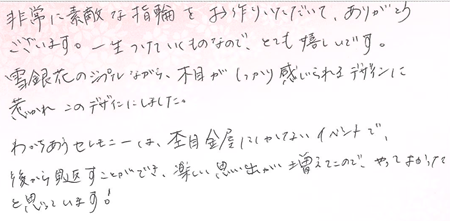 非常に素敵な指輪をお作りいただいて、ありがとう
ございます。一生つけていくものなので、とても嬉しいです。
雪銀花のシンプルながら、木目がしっかり感じられるデザインに
惹かれ このデザインにしました。
わかちあうセレモニーは、杢目金屋にしかないイベントで、
後から見返すことができ、楽しい思い出が増えたので、やってよかった
と思っています!